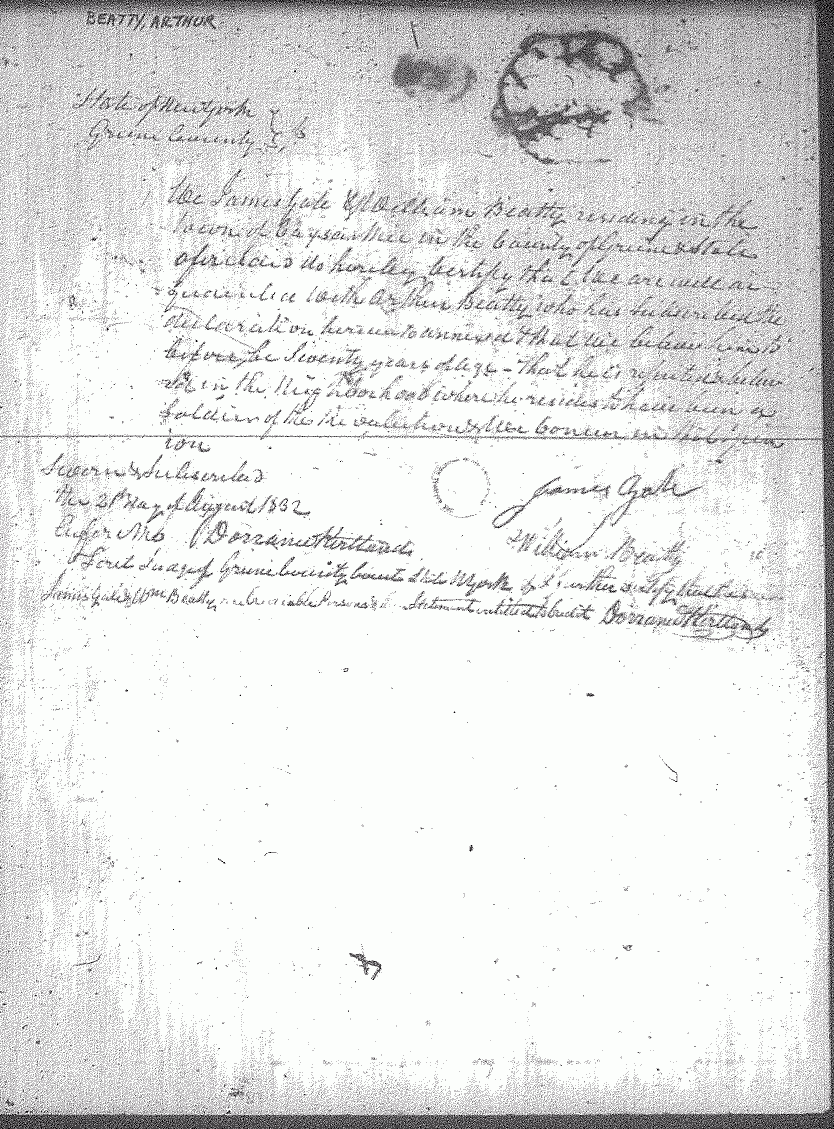 BEATTY, ARTHUR
State of New York
Greene County } ss
We James Gale & William Beatty residing in the
town of in the County of Greene & State
aforesaid do hereby Certify that we are well ac
quainted with Arthur Beatty who has subscribed the
declaration hereunto annexed & that we believe him to
be Seventy years of age - that he is reputed & believ
ed in the Neighborhood where he resides to have been a
Soldier of the the revolution & we concur in that opin
ion
Sworn & Subscribed
the 21 day of August 1832
before Me Dorrance Kirtland
James Gale
William Beatty
First Judge of Greene County Court State NYork & I further certify that
James Gale & Wm Beatty are Creditable Persons & Statement entitled to credit Dorrance Kirtland